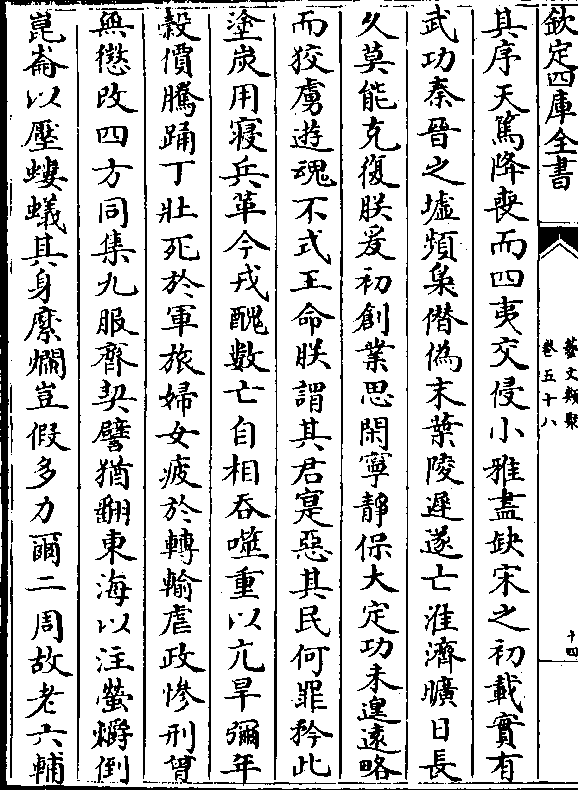 欽定四庫全書
藝文類聚
卷五十八
十四
其序天篤降喪而四夷交侵小雅盡缺宋之初載實有
武功秦晉之墟頻梟僭偽末葉陵遲遂亡淮濟曠日長
久莫能克復朕爰初創業思閑寧靜保大定功未遑遠略
而狡虜遊魂不式王命朕謂其君寔惡其民何罪矜此
塗炭用寢兵革今戎醜數亡自相吞噬重以亢旱彌年
榖價騰踊丁壯死於軍旅婦女疲於轉輸虐政慘刑曾
無懲改四方同集九服齊契譬猶翻東海以注螢爝倒
崑崙以壓螻蟻其身糜爛豈假多力爾二周故老六輔